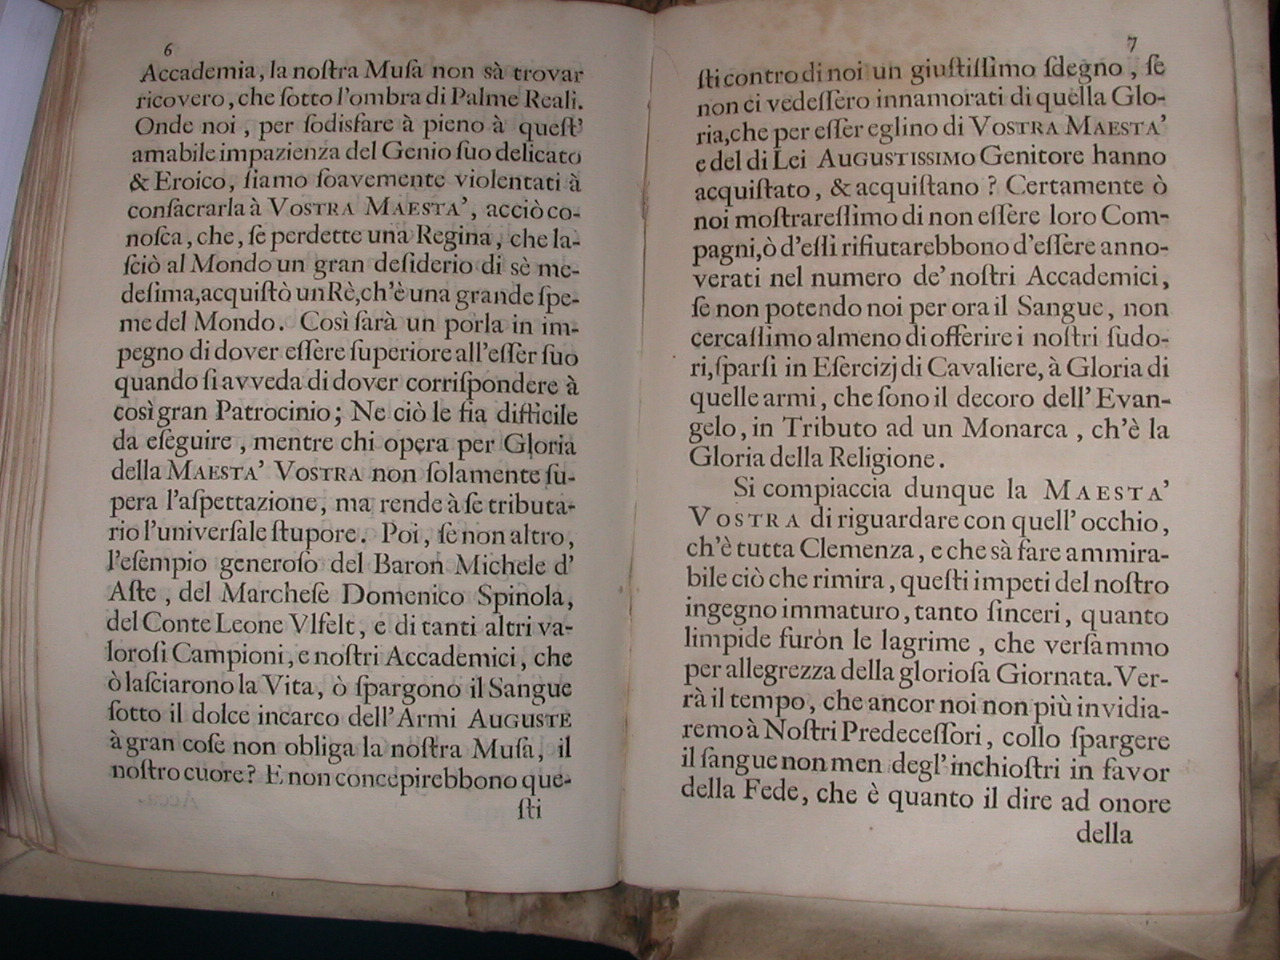 6
Accademia, la noſtra Muſa non sà trovar
ricovero, che ſotto l'ombra di Palme Reali.
Onde noi, per ſodisfare à pieno à queſt'
amabile impazienza del Genio ſuo delicato
& Eroico, ſiamo ſoavemente violentati à
conſacrarla à VOSTRA MAESTA', acciò co-
noſca, che, ſe perdette una Regina, che la-
ſciò al Mondo un gran deſiderio di sè me-
deſima, acquiſtò un Rè, ch'è una grande ſpe-
me del Mondo. Così ſarà un porla in im-
pegno di dover eſſere ſuperiore all'eſſer ſuo
quando ſi avveda di dover corriſpondere à
così gran Patrocinio; Ne ciò le fia difficile
da eſeguire, mentre chi opera per Gloria
della MAESTA' VOSTRA non ſolamente ſu-
pera l'aſpettazione, ma rende à ſe tributa-
rio l'univerſale ſtupore. Poi, ſe non altro,
l'eſempio generoſo del Baron Michele d'
Aſte, del Marcheſe Domenico Spinola,
del Conte Leone Vlfelt, e di tanti altri va-
loroſi Campioni, e noſtri Accademici, che
ò laſciarono la Vita, ò ſpargono il Sangue
ſotto il dolce incarco dell'Armi AUGUSTE
à gran coſe non obliga la noſtra Muſa, il
noſtro cuore? E non concepirebbono que-
ſti
7
ſti contro di noi un giuſtiſſimo ſdegno, ſe
non ci vedeſſero innamorati di quella Glo-
ria, che per eſſer eglino di VOSTRA MAESTA'
e del di Lei AUGUSTISSIMO Genitore hanno
acquiſtato, & acquiſtano? Certamente ò
noi moſtrareſſimo di non eſſere loro Com-
pagni, ò d'eſſi rifiutarebbono d'eſſere anno-
verati nel numero de' noſtri Accademici,
ſe non potendo noi per ora il Sangue, non
cercaſſimo almeno di offerire i noſtri ſudo-
ri, ſparſi in Eſercizj di Cavaliere, à Gloria di
quelle armi, che ſono il decoro dell' Evan-
gelo, in Tributo ad un Monarca, ch'è la
Gloria della Religione.
Si compiaccia dunque la MAESTA'
VOSTRA di riguardare con quell' occhio,
ch'è tutta Clemenza, e che sà fare ammira-
bile ciò che rimira, queſti impeti del noſtro
ingegno immaturo, tanto ſinceri, quanto
limpide furòn le lagrime, che verſammo
per allegrezza della glorioſa Giornata. Ver-
rà il tempo, che ancor noi non più invidia-
remo à Noſtri Predeceſſori, collo ſpargere
il ſangue non men degl' inchioſtri in favor
della Fede, che è quanto il dire ad onore
della